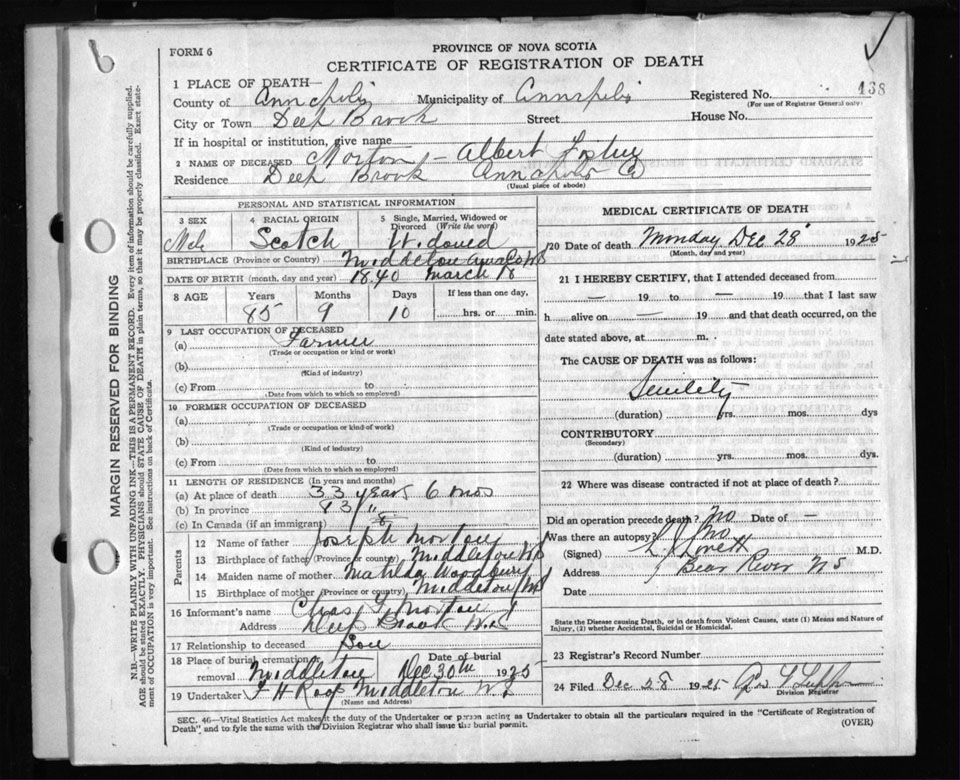 FORM 6
PROVINCE OF NOVA SCOTIA
CERTIFICATE OF REGISTRATION OF DEATH
1 PLACE OF DEATH—
County of Annapolis Municipality of Annapolis Registered No. 138
(For use of Registrar General only)
City or Town Deep Brook Street House No.
If in hospital or institution, give name
2 NAME OF DECEASED Morton - Albert Foster
Residence Deep Brook Annapolis Co
(Usual place of abode)
PERSONAL AND STATISTICAL INFORMATION
3 SEX 4 RACIAL ORIGIN 5 Single, Married, Widowed or Divorced (Write the word)
Male Scotch Widowed
BIRTHPLACE (Province or Country) Middleton Anna Co NS
DATE OF BIRTH (month, day and year) 1840 March 18
8 AGE Years Months Days If less than one day,
85 9 10 hrs. or min.
9 LAST OCCUPATION OF DECEASED
(a) Farmer
(Trade or occupation or kind or work)
(b)
(Kind of industry)
(c) From to
(Date from which to which so employed)
10 FORMER OCCUPATION OF DECEASED
(a)
(Trade or occupation or kind of work)
(b)
(Kind of industry)
(c) From to
(Date from which to which so employed)
11 LENGTH OF RESIDENCE (In years and months)
(a) At place of death 33 years 6 mos
(b) In province 83 "
(c) In Canada (if an immigrant)
Parents
12 Name of father Joseph Morton
13 Birthplace of father (Province or country) Middleton NS
14 Maiden name of mother Matilda Woodbury
15 Birthplace of mother (Province or country) Middleton NS
16 Informant's name Chas Morton
Address Deep Brook N.S
17 Relationship to deceased Son
18 Place of burial cremation or removal Middleton Date of burial Dec 30th 1925
19 Undertaker F H Roop Middleton N.S
(Name and Address)
MEDICAL CERTIFICATE OF DEATH
20 Date of death Monday Dec 28 1925
(Month, day and year)
21 I HEREBY CERTIFY, that I attended deceased from
— 19 to — 19 that I last saw
h alive on — 19 and that death occurred, on the
date stated above, at m.
The CAUSE OF DEATH was as follows:
Senility
(duration) yrs. mos. dys
CONTRIBUTORY
(Secondary)
(duration) yrs. mos. dys.
22 Where was disease contracted if not at place of death?
Did an operation precede death? No Date of —
Was there an autopsy? No
(Signed) Lovett M.D.
Address Bear River N S
Date
State the Disease causing Death, or in death from Violent Causes, state (1) Means and Nature of Injury, (2) whether Accidental, Suicidal or Homicidal.
23 Registrar's Record Number
24 Filed Dec 28 1925
Division Registrar
SEC. 46—Vital Statistics Act makes it the duty of the Undertaker or person acting as Undertaker to obtain all the particulars required in the "Certificate of Registration of
Death" and to fyle the same with the Division Registrar who shall issue the burial permit. (OVER)
MARGIN RESERVED FOR BINDING
N.B.—WRITE PLAINLY WITH UNFADING INK—THIS IS A PERMANENT RECORD. Every item of information should be carefully supplied.
AGE should be stated EXACTLY. PHYSICIANS should STATE CAUSE OF DEATH in plain terms, so that it may be properly classified. Exact state-
ment of OCCUPATION is very important. See instructions on back of Certificate.